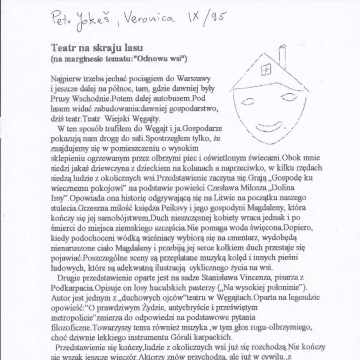 Petr Jokeš, Veronica IX/95
Teatr na skraju lasu
(na marginesie tematu:"Odnowa wsi")
Najpierw trzeba jechać pociągiem do Warszawy
i jeszcze dalej na północ, tam, gdzie dawniej były
Prusy Wschodnie.Potem dalej autobusem.Pod
lasem widać zabudowania:dawniej gospodarstwo,
dziś teatr.Teatr Wiejski Węgajty.
W ten sposób trafiłem do Węgajt i ja.Gospodarze
pokazują nam drogę do sali.Spostrzegłem tylko, że
znajdujemy się w pomieszczeniu o wysokim
sklepieniu ogrzewanym przez olbrzymi piec i oświetlonym świecami.Obok mnie
siedzi jakaś dziewczyna z dzieckiem na kolanach a naprzeciwko, w kilku rzędach
siedzą ludzie z okolicznych wsi.Przedstawienie zaczyna się.Grają „Gospodę ku
wiecznemu pokojowi" na podstawie powieści Czesława Miłosza „Dolina
Issy".Opowiada ona historię odgrywającą się na Litwie na początku naszego
stulecia.Grzeszna miłość księdza Peiksvy i jego gospodyni Magdaleny, która
kończy się jej samobójstwem.Duch nieszczęsnej kobiety wraca jednak i po
śmierci do miejsca ziemskiego szczęścia.Nie pomaga woda święcona.Dopiero,
kiedy podochoceni wódką wieśniacy wybiorą się na cmentarz, wydobędą
nienaruszone ciało Magdaleny i przebiją jej serce kołkiem duch przestaje się
pojawiać.Poszczególne sceny są przeplatane muzyką kolęd i innych pieśni
ludowych, które są adekwatną ilustracją cyklicznego życia na wsi.
Drugie przedstawienie oparte jest na sadze Stanisława Vincenza, pisarza z
Podkarpacia.Opisuje on losy huculskich pasterzy („Na wysokiej połoninie").
Autor jest jednym z „duchowych ojców"teatru w Węgajtach.Oparta na legendzie
opowieść:"O prawdziwym Żydzie, antychryście i przeświętym
metropolicie"zmierza do odpowiedzi na podstawowe pytania
filozoficzne.Towarzyszy temu również muzyka ,w tym głos rogu-olbrzymiego,
choć dziwnie lekkiego instrumentu Górali karpackich.
Przedstawienie się kończy,ludzie z okolicznych wsi już się rozchodzą.Nie kończy
się wszak jeszcze wieczór.Aktorzy znów przychodzą, ale już w cywilu..z